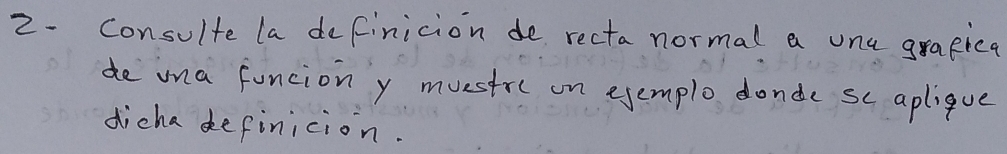 2- Consulte la definición de recta normal a una grafica
de una función y muestre un ejemplo donde se aplique
dicha definición.